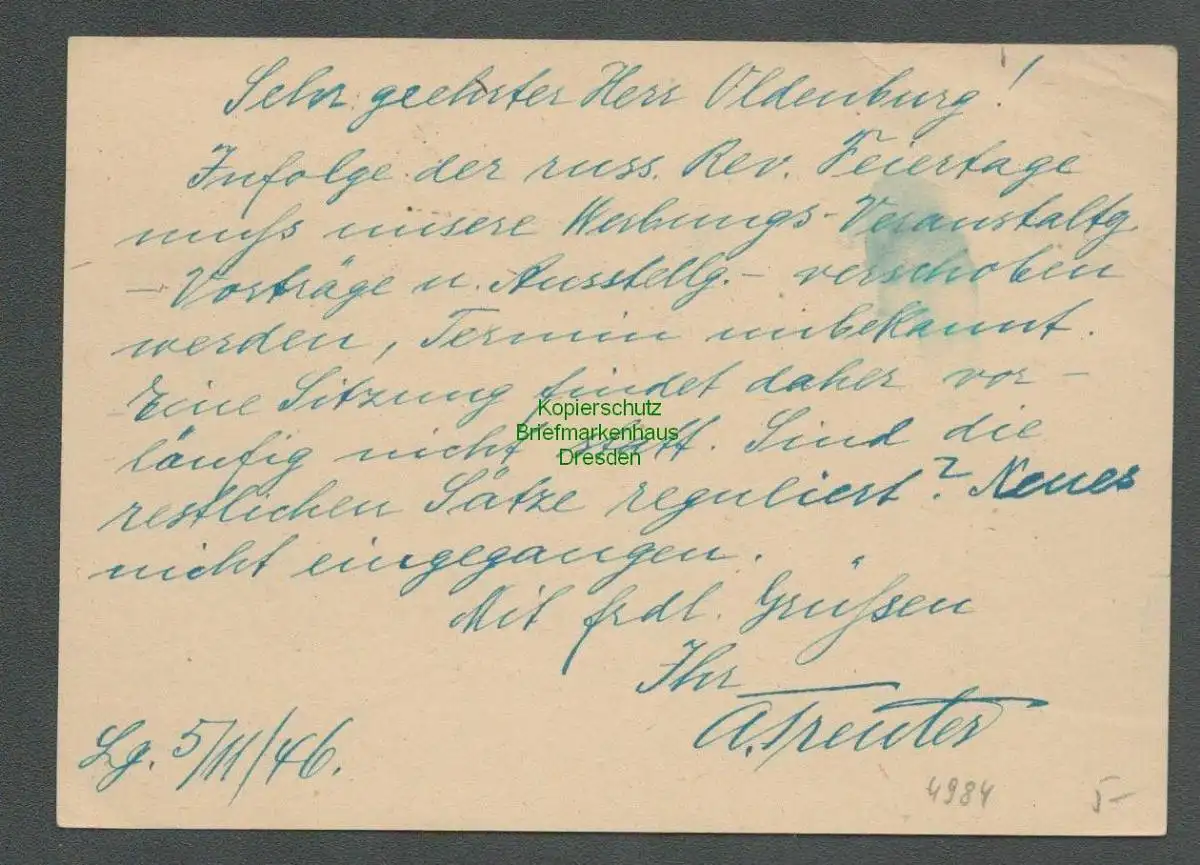 Sehr geehrter Herr Oldenburg!
Infolge der russ. Rev. Feiertage
muß unsere Werbungs-Veranstaltg
- Vorträge u. Ausstellg. - verschoben
werden, Termin unbekannt.
Eine Sitzung findet daher vor-
läufig nicht statt. Sind die
restlichen Sätze reguliert? Neues
nicht eingegangen.
Mit frdl. Grüßen
Ihr
Lg. 5/11/46.
4984
5-
Kopierschutz
Briefmarkenhaus
Dresden